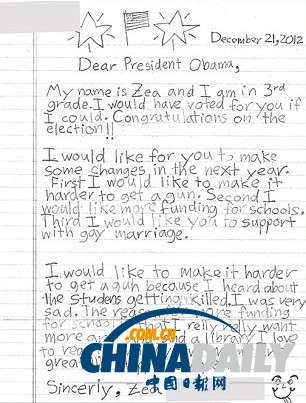 December 21, 2012
Dear President Obama,
My name is Zea and I am in 3rd
grade. I would have voted for you if
I could. Congratulations on the
election!!
I would like for you to make
some changes in the next year.
First I would like to make it
harder to get a gun. Second I
would like more funding for schools.
Third I would like you to support
with gay marriage.
I would like to make it harder
to get a gun because I heard about
the studens getting killed. I was very
sad. The reason more funding
for school that I relly relly want
more and a library I love
to rea
great
Sincerly, Zea
.COM.CN
CHINADAILY
中国日报网